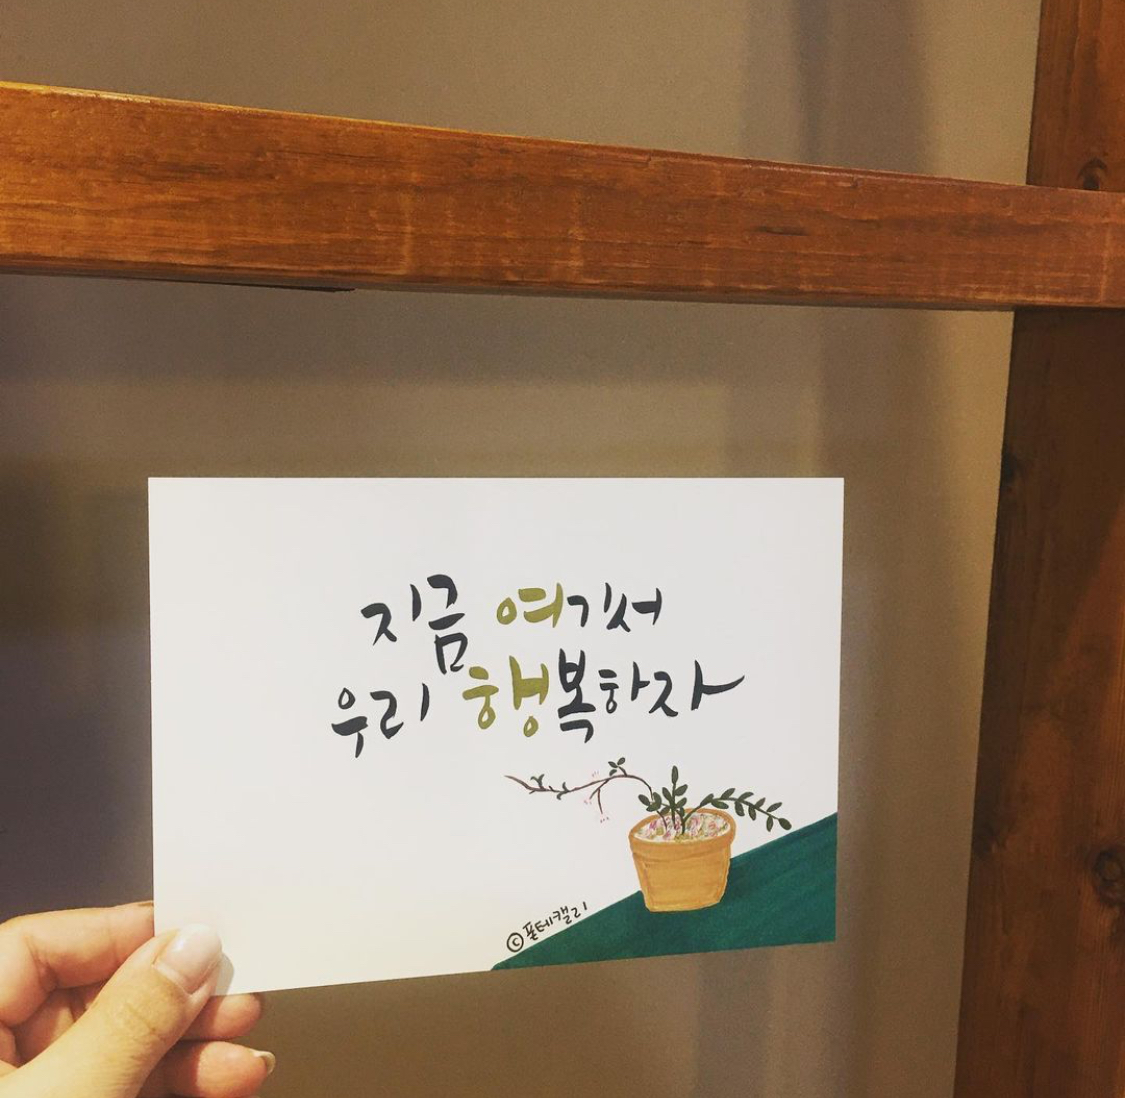 지금 여기서
우리 행복하자
©폴테캘리